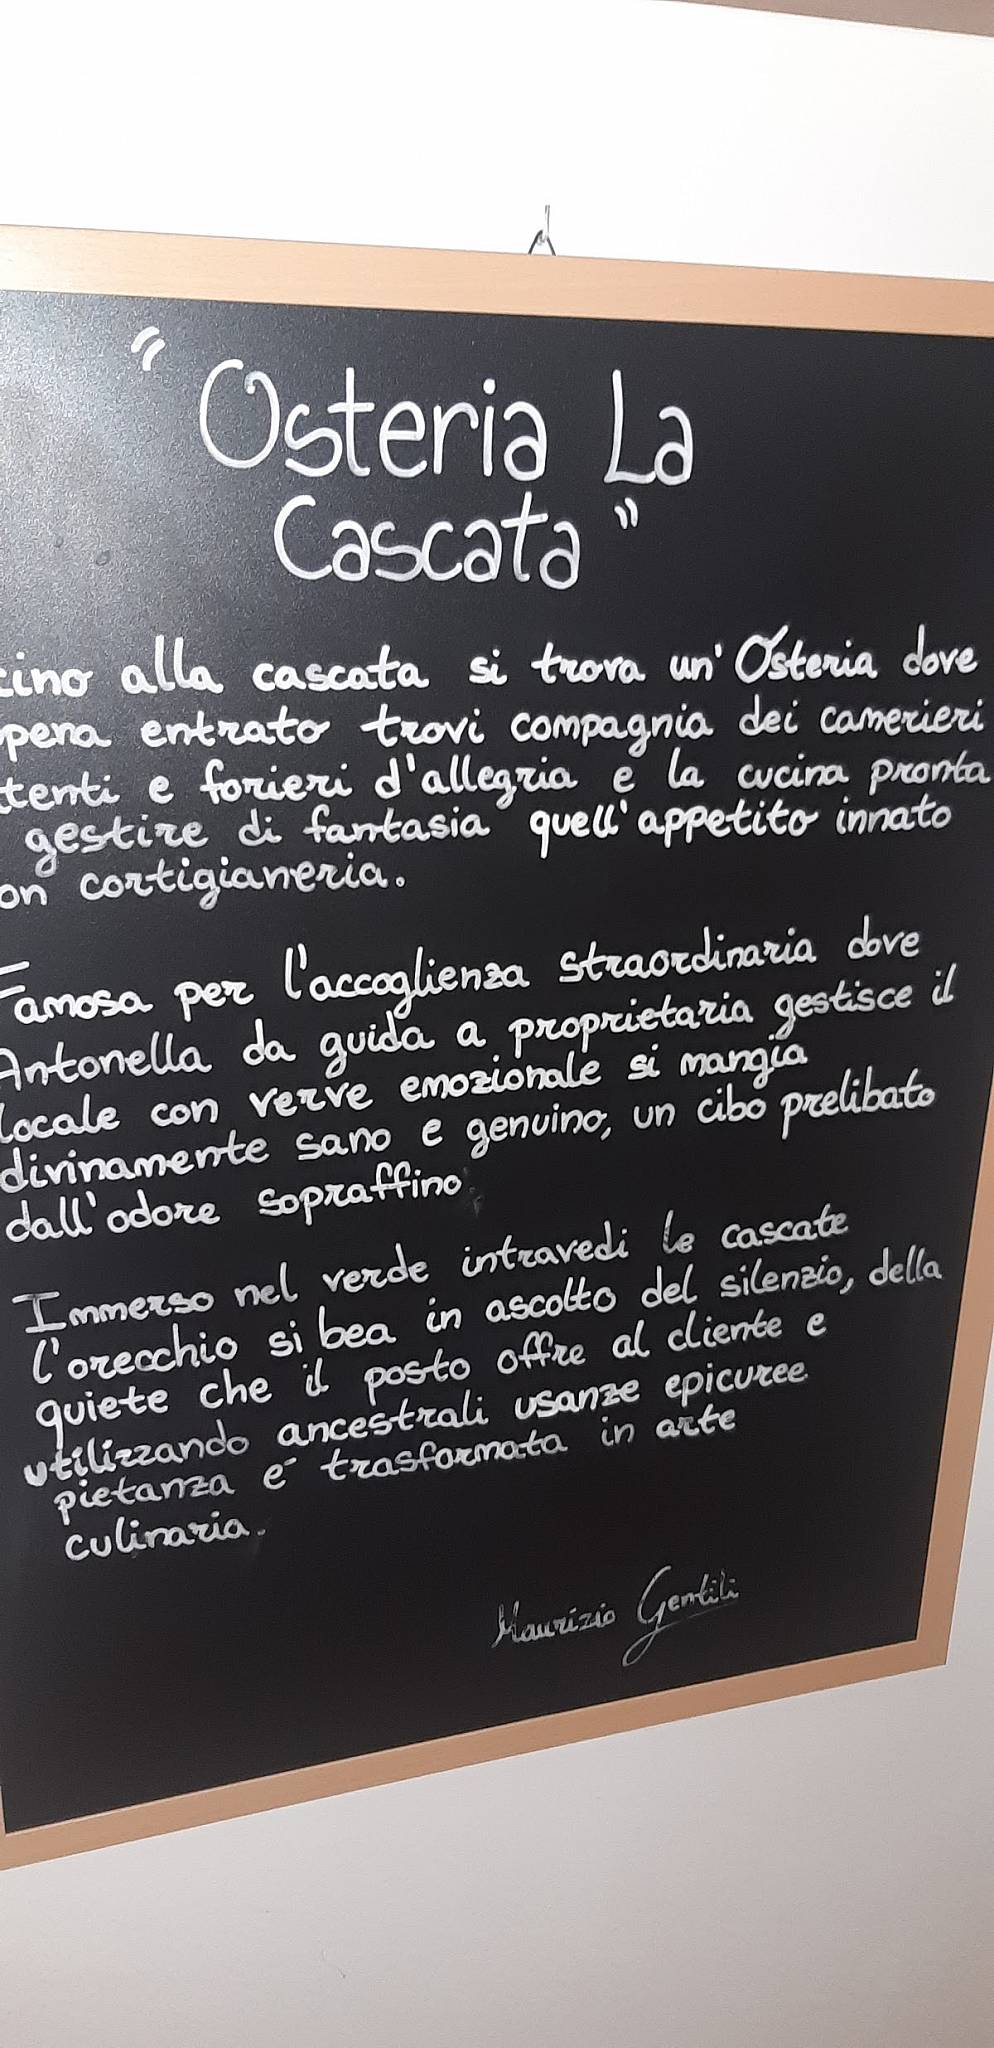 "Osteria La
Cascata"
cino alla cascata si trova un' Osteria dove
pena entrato trovi compagnia dei camerieri
tenti e forieri d'allegria e la cucina pronta
gestire di fantasia quell'appetito innato
on cortigianeria.
Famosa per l'accoglienza straordinaria dove
Antonella da guida a proprietaria gestisce il
locale con verve emozionale si mangia
divinamente sano e genuino, un cibo prelibato
dall'odore sopraffino.
Immerso nel verde intravedi le cascate
l'orecchio si bea in ascolto del silenzio, della
quiete che il posto offre al cliente e
utilizzando ancestrali usanze epicuree
pietanza e' trasformata in arte
culinaria.
Maurizio Gentili